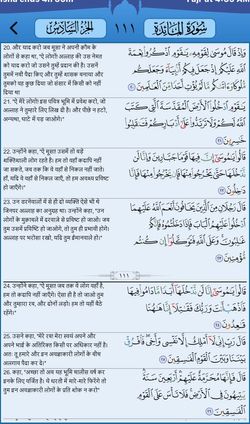 سُورَةُ المَائـِدَة
١١١
الجزء السادس
20. और याद करो जब मूसा ने अपनी क़ौम के
लोगों से कहा था, "ऐ लोगों! अल्लाह की उस नेमत
को याद करो जो उसने तुम्हें प्रदान की है। उसने
तुममें नबी पैदा किए और तुम्हें शासक बनाया और
तुमको वह कुछ दिया जो संसार में किसी को नहीं
दिया था
وَإِذْ قَالَ مُوسَىٰ لِقَوْمِهِۦ يَـٰقَوْمِ ٱذْكُرُوا۟ نِعْمَةَ
ٱللَّهِ عَلَيْكُمْ إِذْ جَعَلَ فِيكُمْ أَنۢبِيَآءَ وَجَعَلَكُم
مُّلُوكًا وَءَاتَىٰكُم مَّا لَمْ يُؤْتِ أَحَدًا مِّنَ ٱلْعَـٰلَمِينَ ٢٠
21. "ऐ मेरे लोगो! इस पवित्र भूमि में प्रवेश करो, जो
अल्लाह ने तुम्हारे लिए लिख दी है। और पीछे न हटो,
अन्यथा, घाटे में पड़ जाओगे।"
يَـٰقَوْمِ ٱدْخُلُوا۟ ٱلْأَرْضَ ٱلْمُقَدَّسَةَ ٱلَّتِى كَتَبَ
ٱللَّهُ لَكُمْ وَلَا تَرْتَدُّوا۟ عَلَىٰٓ أَدْبَارِكُمْ فَتَنقَلِبُوا۟
خَـٰسِرِينَ ٢١
22. उन्होंने कहा, "ऐ मूसा! उसमें तो बड़े
शक्तिशाली लोग रहते हैं। हम तो वहाँ कदापि नहीं
जा सकते, जब तक कि वे वहाँ से निकल नहीं जाते।
हाँ, यदि वे वहाँ से निकल जाएँ, तो हम अवश्य प्रविष्ट
हो जाएँगे।"
قَالُوا۟ يَـٰمُوسَىٰٓ إِنَّ فِيهَا قَوْمًا جَبَّارِينَ وَإِنَّا لَن
نَّدْخُلَهَا حَتَّىٰ يَخْرُجُوا۟ مِنْهَا فَإِن يَخْرُجُوا۟ مِنْهَا فَإِنَّا
دَٰخِلُونَ ٢٢
23. उन डरनेवालों में से ही दो व्यक्ति ऐसे भी थे
जिनपर अल्लाह का अनुग्रह था। उन्होंने कहा, "उन
लोगों के मुक़ाबले में दरवाज़े से प्रविष्ट हो जाओ। जब
तुम उसमें प्रविष्टि हो जाओगे, तो तुम ही प्रभावी होगे।
अल्लाह पर भरोसा रखो, यदि तुम ईमानवाले हो।"
قَالَ رَجُلَانِ مِنَ ٱلَّذِينَ يَخَافُونَ أَنْعَمَ ٱللَّهُ عَلَيْهِمَا
ٱدْخُلُوا۟ عَلَيْهِمُ ٱلْبَابَ فَإِذَا دَخَلْتُمُوهُ فَإِنَّكُمْ
غَـٰلِبُونَ وَعَلَى ٱللَّهِ فَتَوَكَّلُوٓا۟ إِن كُنتُم
مُّؤْمِنِينَ ٢٣
١١١
24. उन्होंने कहा, "ऐ मूसा! जब तक वे लोग वहाँ
है, हम तो कदापि नहीं जाएँगे। ऐसा ही है तो जाओ तुम
और तुम्हारा रब, और दोनों लड़ो। हम तो यहीं बैठे
रहेंगे।"
قَالُوا۟ يَـٰمُوسَىٰٓ إِنَّا لَن نَّدْخُلَهَآ أَبَدًا مَّا دَامُوا۟ فِيهَا
فَٱذْهَبْ أَنتَ وَرَبُّكَ فَقَـٰتِلَآ إِنَّا هَـٰهُنَا
قَـٰعِدُونَ ٢٤
25. उसने कहा, "मेरे रब! मेरा स्वयं अपने और
अपने भाई के अतिरिक्त किसी पर अधिकार नहीं है।
अतः तू हमारे और इन अवज्ञाकारी लोगों के बीच
अलगाव पैदा कर दे।"
قَالَ رَبِّ إِنِّى لَآ أَمْلِكُ إِلَّا نَفْسِى وَأَخِى فَٱفْرُقْ
بَيْنَنَا وَبَيْنَ ٱلْقَوْمِ ٱلْفَـٰسِقِينَ ٢٥
26. कहा, "अच्छा तो अब यह भूमि चालीस वर्ष कर
इनके लिए वर्जित है। ये धरती में मारे-मारे फिरेंगे तो
तुम इन अवज्ञाकारी लोगों के प्रति शोक न करो"
قَالَ فَإِنَّهَا مُحَرَّمَةٌ عَلَيْهِمْ أَرْبَعِينَ سَنَةً
يَتِيهُونَ فِى ٱلْأَرْضِ فَلَا تَأْسَ عَلَى ٱلْقَوْمِ
ٱلْفَـٰسِقِينَ ٢٦